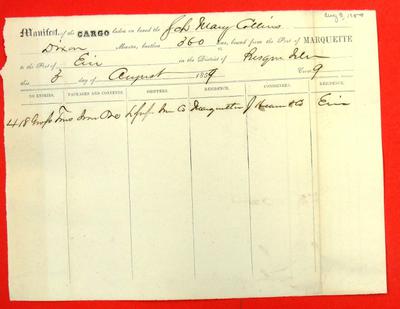 Aug 3, 1859
Manifest of the CARGO laden on board the Sch Mary Collins
Dixon Master, burthen 360 tons, bound from the Port of MARQUETTE
to the Port of Erie in the District of Presque Isle
this 3 day of August 1859 9
NO. ENTRIES. PACKAGES AND CONTENTS. SHIPPERS. RESIDENCE. CONSIGNEES. RESIDENCE.
418 Gross Tons Iron Ore Marquette J Hearn & Co Erie